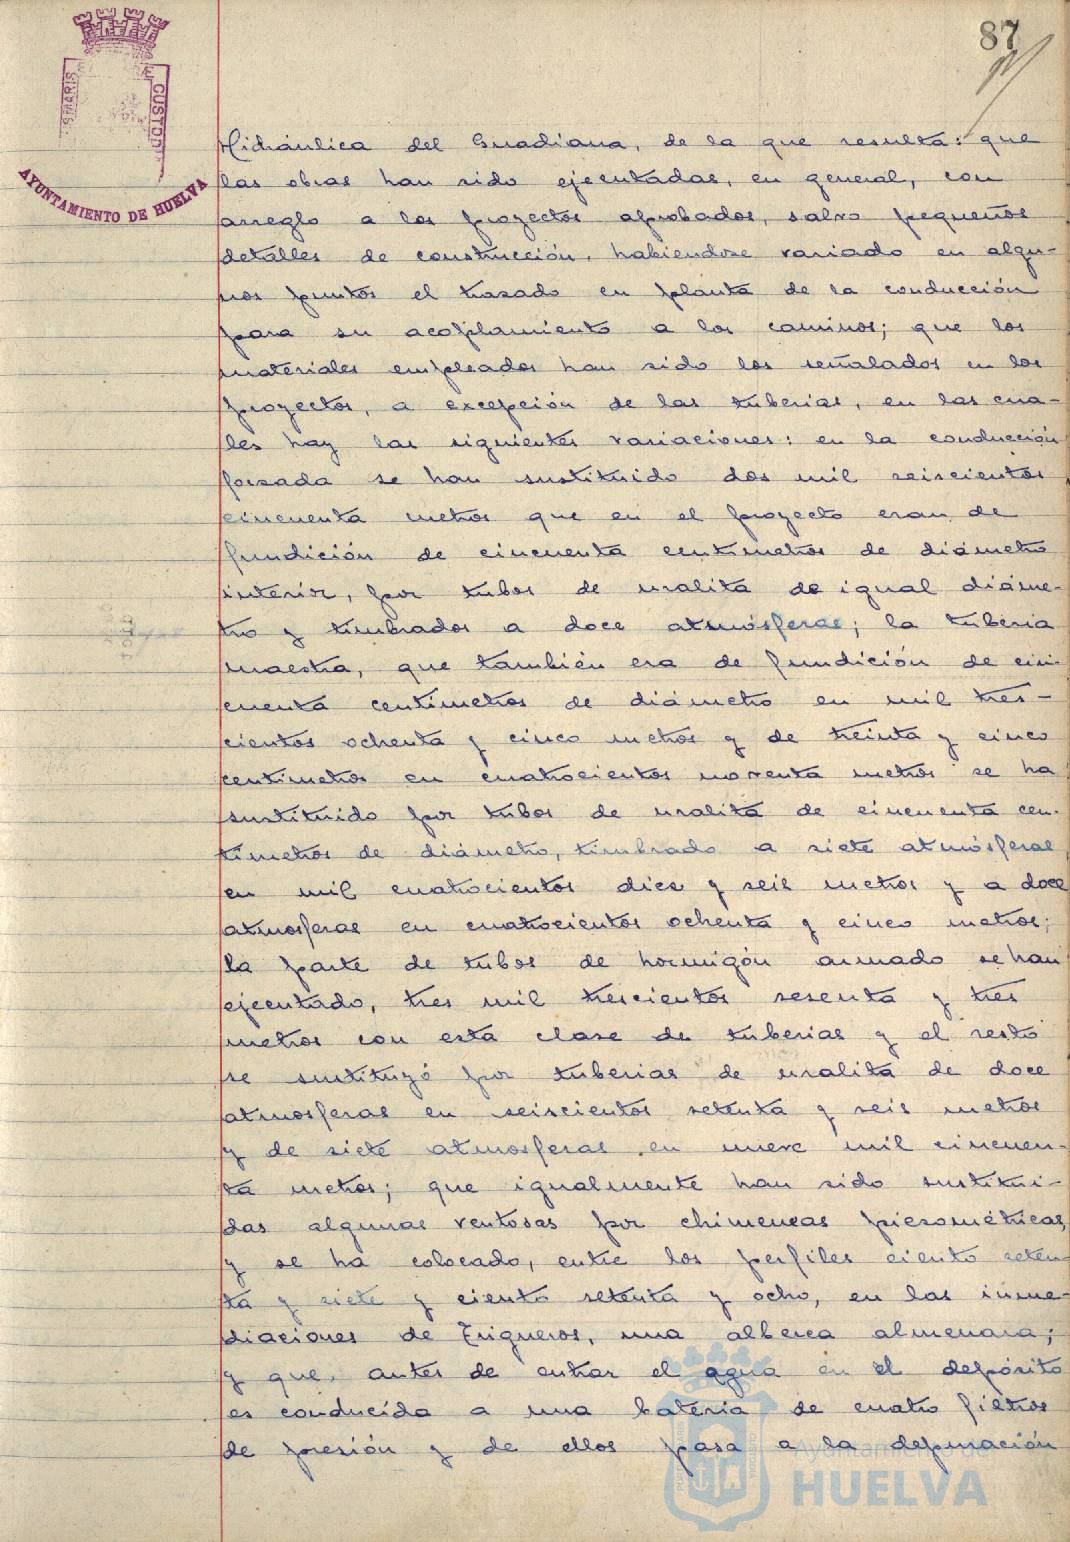 87
SMARIS
CUSTODI
AYUNTAMIENTO DE HUELVA
Hidráulica del Guadiana, de la que resulta: que
las obras han sido ejecutadas, en general, con
arreglo a los proyectos aprobados, salvo pequeños
detalles de construcción, habiendose variado en algu-
nos puntos el trazado en planta de la conducción
para su acoplamiento a los caminos; que los
materiales empleados han sido los señalados en los
proyectos, a excepción de las tuberias, en las cua-
les hay las siguientes variaciones: en la conducción
forzada se han sustituido dos mil seiscientos
cincuenta metros que en el proyecto eran de
fundición de cincuenta centimetros de diámetro
interior, por tubos de uralita de igual diáme-
tro y timbrados a doce atmósferas; la tuberia
maestra, que también era de fundición de cin-
cuenta centimetros de diámetro en mil tres-
cientos ochenta y cinco metros y de treinta y cinco
centimetros en cuatrocientos noventa metros se ha
sustituido por tubos de uralita de cincuenta cen-
timetros de diámetro, timbrado a siete atmósferas,
en mil cuatrocientos diez y seis metros y a doce
atmosferas en cuatrocientos ochenta y cinco metros;
la parte de tubos de hormigón armado se han
ejecutado, tres mil trescientos sesenta y tres
metros con esta clase de tuberias y el resto
se sustituyó por tuberias de uralita de doce
atmosferas en seiscientos setenta y seis metros
y de siete atmosferas en nueve mil cincuen-
ta metros; que igualmente han sido sustitui-
das algunas ventosas por chimeneas piezométricas,
y se ha colocado, entre los perfiles ciento seten-
ta y siete y ciento setenta y ocho, en las inme-
diaciones de Trigueros, una alberca almenara;
y que, antes de entrar el agua en el depósito
es conducida a una bateria de cuatro filtros
de presión y de ellos pasa a la depuración
Ayuntamiento de
HUELVA